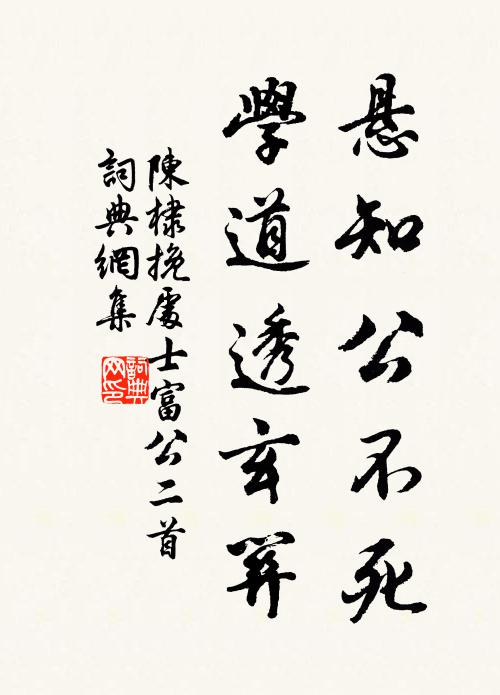 悬知公不死
學道透玄關
陳棣挽處士富公二首
詞典網集
詞典
网印